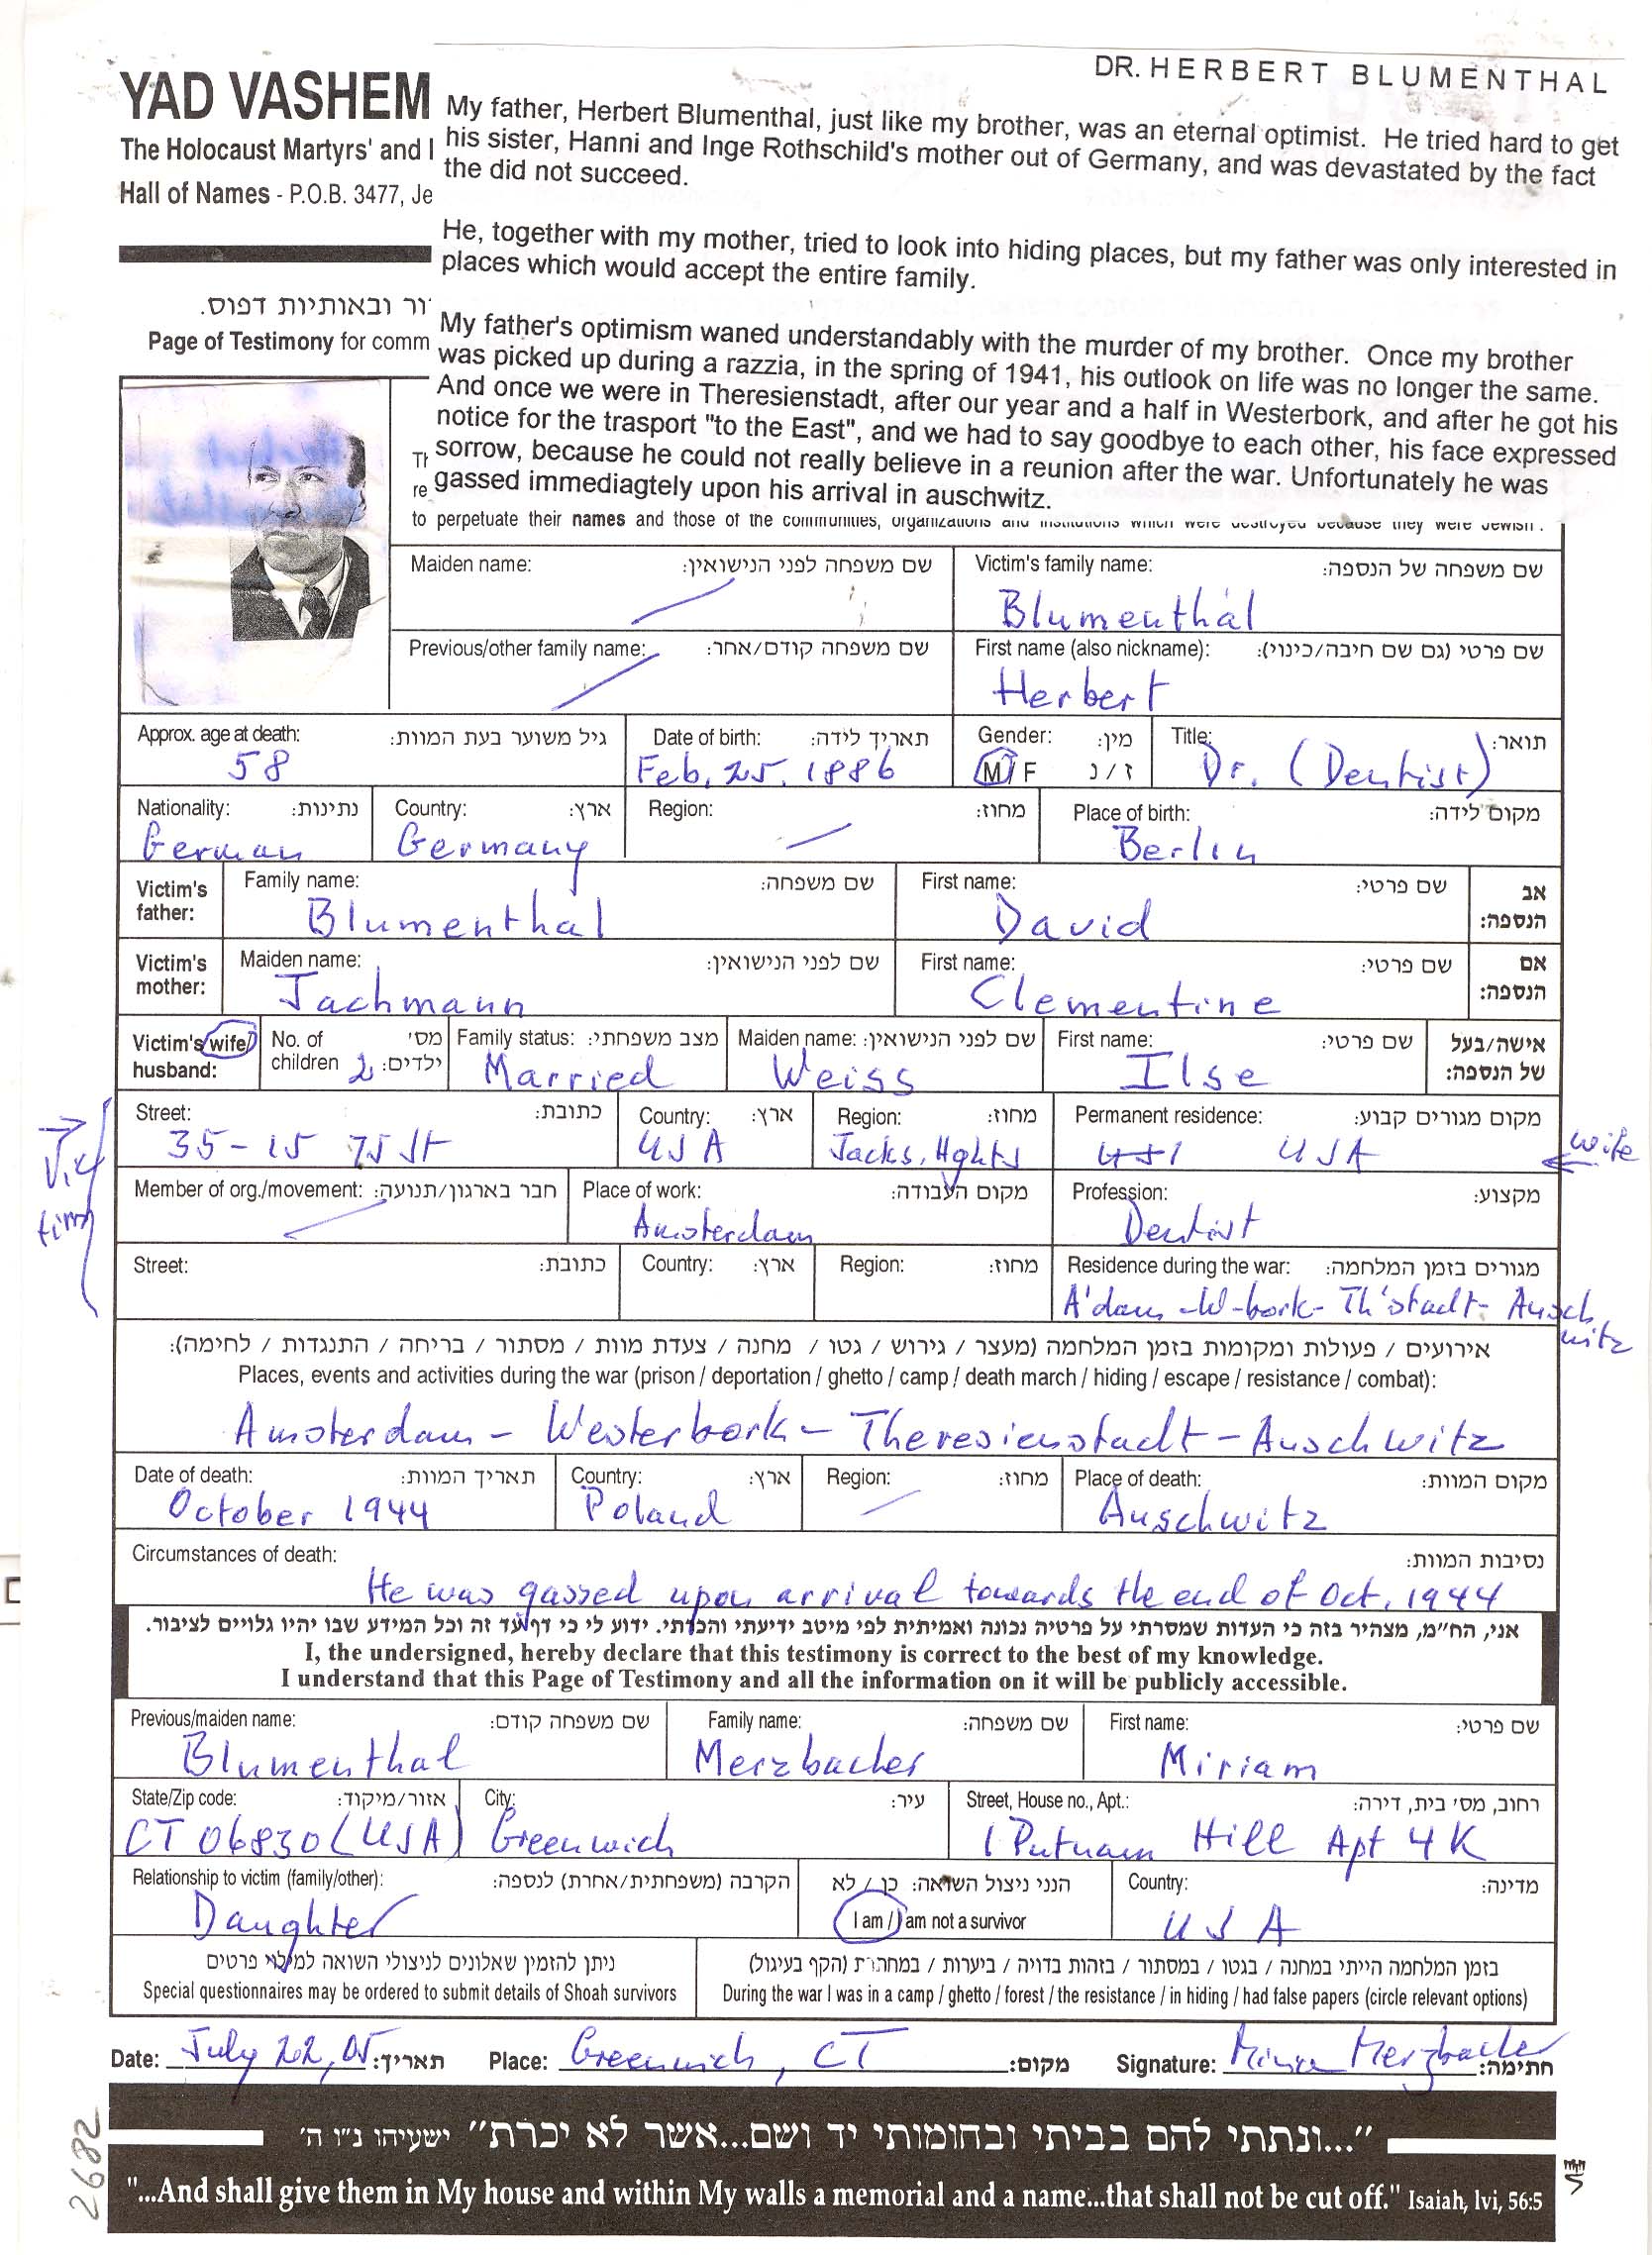 DR. HERBERT BLUMENTHAL
YAD VASHEM
The Holocaust Martyrs' and
Hall of Names - P.O.B. 3477, Je
My father, Herbert Blumenthal, just like my brother, was an eternal optimist. He tried hard to get
his sister, Hanni and Inge Rothschild's mother out of Germany, and was devastated by the fact
the did not succeed.
He, together with my mother, tried to look into hiding places, but my father was only interested in
places which would accept the entire family.
ור ובאותיות דפוס.
Page of Testimony for comm
My father's optimism waned understandably with the murder of my brother. Once my brother
was picked up during a razzia, in the spring of 1941, his outlook on life was no longer the same.
And once we were in Theresienstadt, after our year and a half in Westerbork, and after he got his
notice for the trasport "to the East", and we had to say goodbye to each other, his face expressed
sorrow, because he could not really believe in a reunion after the war. Unfortunately he was
gassed immediagtely upon his arrival in auschwitz.
to perpetuate their names and those of the communities, organizations and institutions which were destroyed because they were Jewish.
Maiden name: שם משפחה לפני הנישואין: Victim's family name: שם משפחה של הנספה:
Blumenthal
Previous/other family name: שם משפחה קודם/אחר: First name (also nickname): שם פרטי (גם שם חיבה/כינוי):
Herbert
Approx. age at death: גיל משוער בעת המוות: Date of birth: תאריך לידה: Gender: מין: Title: תואר:
58 Feb. 25. 1886 M / F ז / נ Dr. (Dentist)
Nationality: נתינות: Country: ארץ: Region: מחוז: Place of birth: מקום לידה:
German Germany Berlin
Victim's father: Family name: שם משפחה: First name: שם פרטי: אב הנספה:
Blumenthal David
Victim's mother: Maiden name: שם לפני הנישואין: First name: שם פרטי: אם הנספה:
Jachmann Clementine
Victim's wife/ husband: No. of children מס' ילדים: Family status: מצב משפחתי: Maiden name: שם לפני הנישואין: First name: שם פרטי: אישה/בעל של הנספה:
2 Married Weiss Ilse
Street: כתובת: Country: ארץ: Region: מחוז: Permanent residence: מקום מגורים קבוע:
35-15 75 St USA Jacks. Hghts USA wife
Victim
Member of org./movement: חבר בארגון/תנועה: Place of work: מקום העבודה: Profession: מקצוע:
Amsterdam Dentist
Street: כתובת: Country: ארץ: Region: מחוז: Residence during the war: מגורים בזמן המלחמה:
A'dam - W-bork - Th'stadt - Ausch
witz
אירועים / פעולות ומקומות בזמן המלחמה (מעצר / גירוש / גטו / מחנה / צעדת מוות / מסתור / בריחה / התנגדות / לחימה):
Places, events and activities during the war (prison / deportation / ghetto / camp / death march / hiding / escape / resistance / combat):
Amsterdam - Westerbork - Theresienstadt - Auschwitz
Date of death: תאריך המוות: Country: ארץ: Region: מחוז: Place of death: מקום המוות:
October 1944 Poland Auschwitz
Circumstances of death: נסיבות המוות:
He was gassed upon arrival towards the end of Oct. 1944
אני, הח"מ, מצהיר בזה כי העדות שמסרתי על פרטיה נכונה ואמיתית לפי מיטב ידיעתי והכרתי. ידוע לי כי דף עד זה וכל המידע שבו יהיו גלויים לציבור.
I, the undersigned, hereby declare that this testimony is correct to the best of my knowledge.
I understand that this Page of Testimony and all the information on it will be publicly accessible.
Previous/maiden name: שם משפחה קודם: Family name: שם משפחה: First name: שם פרטי:
Blumenthal Merzbacher Miriam
State/Zip code: אזור/מיקוד: City: עיר: Street, House no., Apt.: רחוב, מס' בית, דירה:
CT 06830 (USA) Greenwich 1 Putnam Hill Apt 4K
Relationship to victim (family/other): הקרבה (משפחתית/אחרת) לנספה: הנני ניצול השואה: כן / לא Country: מדינה:
Daughter I am / I am not a survivor USA
ניתן להזמין שאלונים לניצולי השואה למילוי פרטים בזמן המלחמה הייתי במחנה / בגטו / במסתור / בזהות בדויה / ביערות / במחתרת (הקף בעיגול)
Special questionnaires may be ordered to submit details of Shoah survivors During the war I was in a camp / ghetto / forest / the resistance / in hiding / had false papers (circle relevant options)
Date: July 22, 05 תאריך: Place: Greenwich, CT מקום: Signature: Miriam Merzbacher חתימה:
"...ונתתי להם בביתי ובחומותי יד ושם...אשר לא יכרת" ישעיהו נ"ו ה'
"...And shall give them in My house and within My walls a memorial and a name...that shall not be cut off." Isaiah, lvi, 56:5
2682